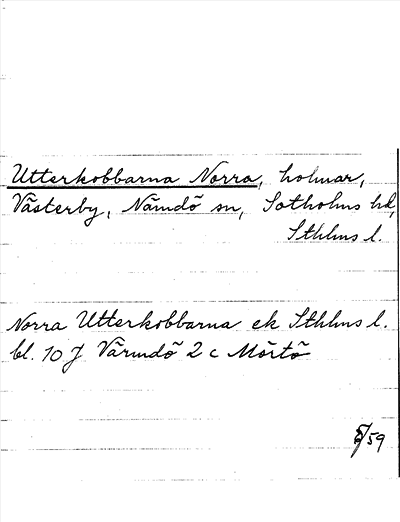 Utterkobbarna Norra, holmar,
Västerby, Nämdö sn, Sotholms hd,
Sthlms l.
Norra Utterkobbarna ek Sthlms l.
bl. 10 J Värmdö 2 c Mörtö
59